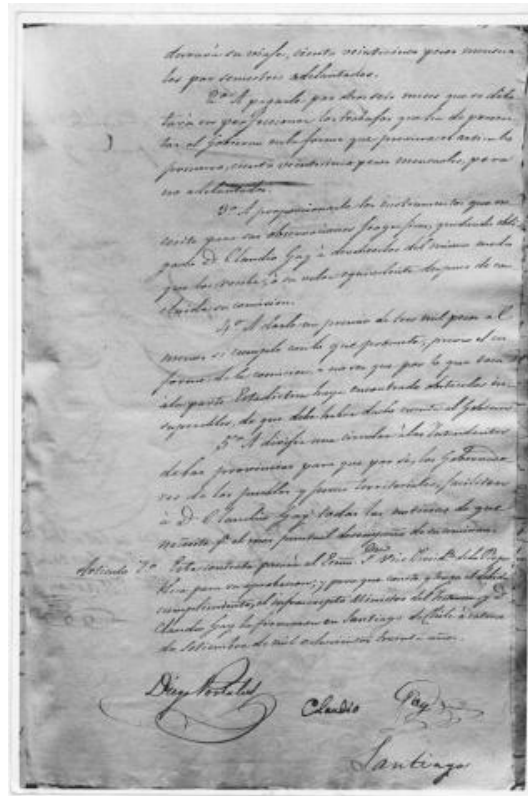 durará su viaje, ciento veinticinco pesos mensua
les por semestres adelantados.
2º A pagarle por otros seis meses que se dila
tará en perfeccionar los trabajos que ha de presen
tar al Gobierno en la forma que previene el artículo
primero, ciento veinticinco pesos mensuales, pero
no adelantados.
3º A proporcionarle los instrumentos que ne
cesita para sus observaciones geográficas, quedando obli
gado D. Claudio Gay à devolverlos del mismo modo
que los recibe, o su valor equivalente despues de con
cluida su comision.
4º A darle un premio de tres mil pesos a lo
menos si cumple con lo que promete, previo el in
forme de la comision, a no ser que por lo que toca
à la parte Estadistica haya encontrado obstaculos in
superables, de que debe haber dado cuenta al Gobierno.
5º A dirigir una circular à los Intendentes
de las provincias para que por si, los Gobernado
res de los pueblos y jueces territoriales, faciliten
à D. Claudio Gay todas las noticias de que
necesite pª el mas puntual desempeño de su comision.
Articulo 7º Este contrato pasará al Exmo Vice Presidte de la Repu
blica para su aprobacion; y para que conste y tenga el debido
cumplimiento, el infrascripto Ministro del Interior y D.
Claudio Gay lo firmaron en Santiago de Chile à catorce
de Setiembre de mil ochocientos treinta años.
Diego Portales
Claudio Gay
Santiago